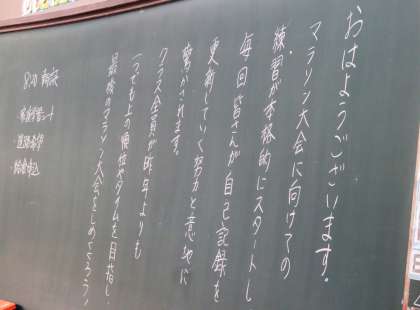 おはようございます。
マラソン大会に向けての
練習が本格的にスタートし
毎回皆さんが自己記録を
更新していく努力と意地に
驚かされます。
クラス全員が昨年よりも
一つでもよい順位やタイムを目指し
最後のマラソン大会をしめくくろう!
8:20
・家庭学習ノート
・進路希望